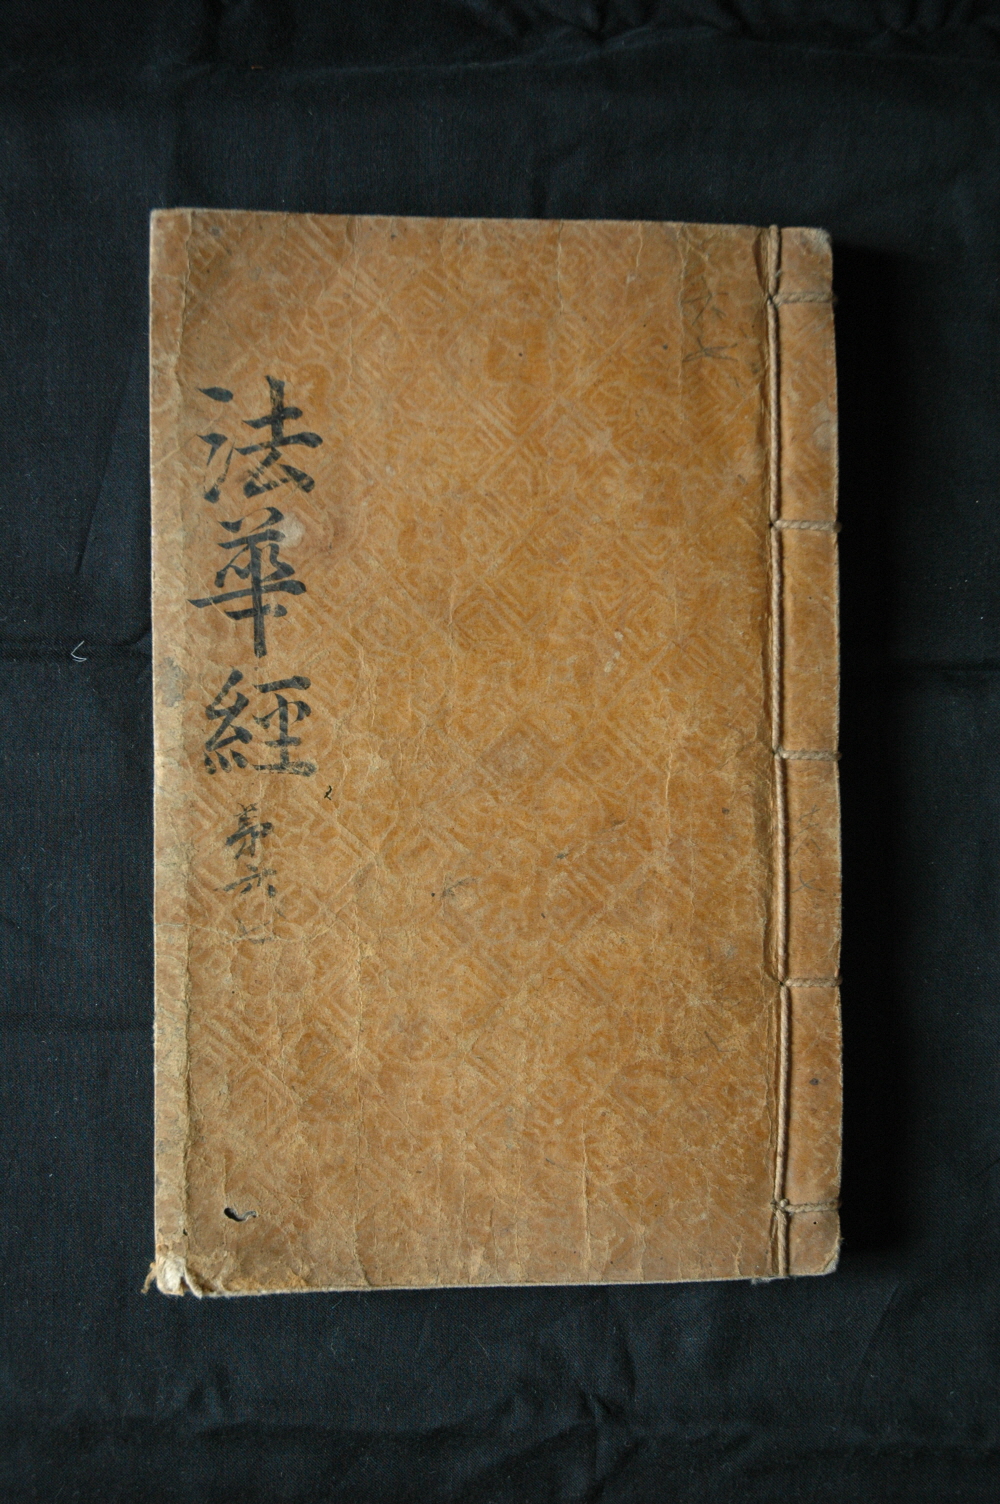 法華經 第六